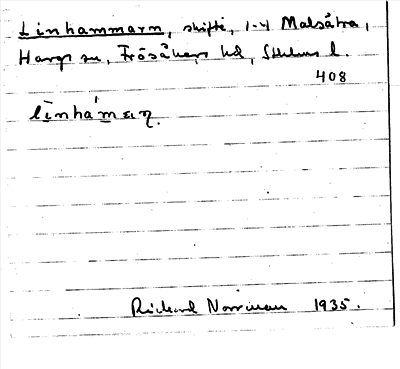 Linhammarn, skifte, 1-4 Malsätra,
Hargs sn, Frösåkers hd, Sthlms l.
408
linhámaɳ.
Richard Norrman 1935.